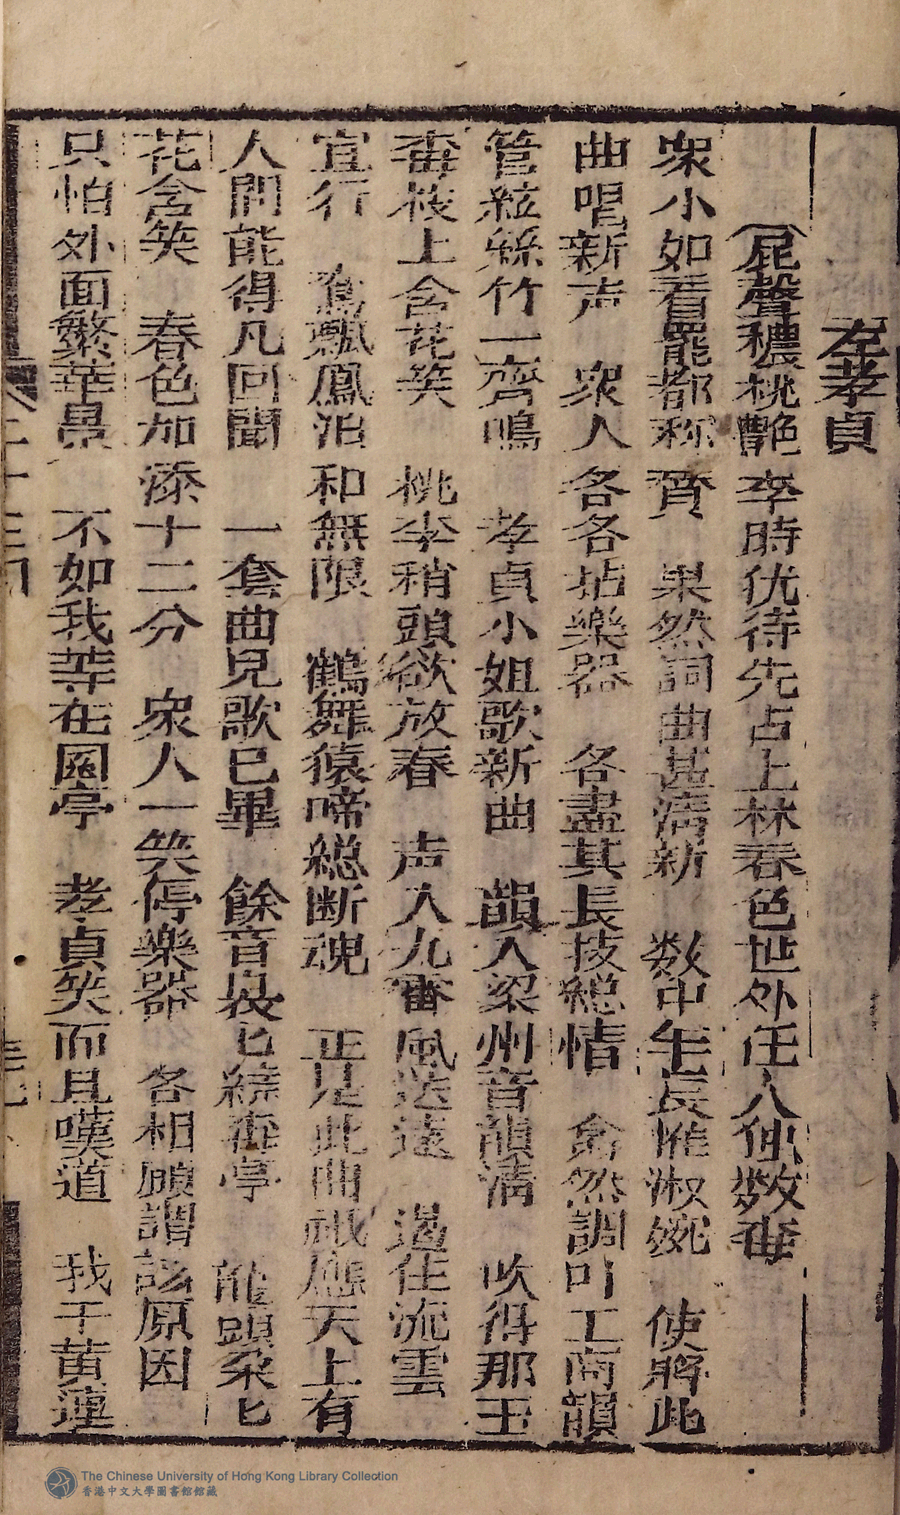 左孝貞
(屁聲穠桃艷李時优待先占上林春色世外任人仙数毒
衆小如看罷都称賫　果然詞曲甚清新　数中年長惟淑婉　使將此
曲唱新声　衆人各各拈樂器　各盡其長技總情　翕然調叶工商韻
管絃絲竹一齊鳴　孝貞小姐歌新曲　韻入梁州音韻清　吹得那玉
毒枝上含花笑　桃李稍頭欲放春　声入九霄風送遠　遏住流雲
宜行　鸞飄鳳泊和無限　鶴舞猿啼總断魂　正是此曲祇應天上有
人間能得凡回聞　一套曲兒歌已畢　餘音裊匕繞毒亭　龍頭朶匕
花含笑　春色加添十二分　衆人一笑停樂器　各相顧謂該原因
只怕外面繁華景　不如我等在園亭　孝貞笑而且嘆道　我于黄蓮
卷二十三回
The Chinese University of Hong Kong Library Collection
香港中文大學圖書館館藏